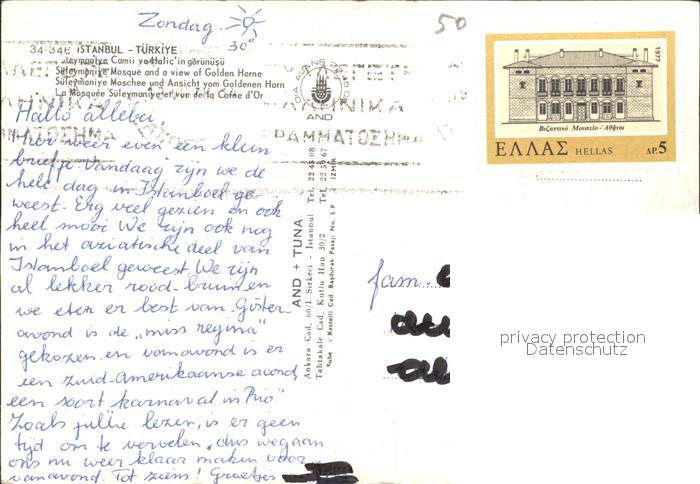 Zondag
30°
50
34-346 İSTANBUL - TÜRKİYE
Süleymaniye Camii ve Haliç'in görünüşü
Süleymaniye Mosque and a view of Golden Horne
Süleymaniye Moschee und Ansicht vom Goldenen Horn
La Mosquée Süleymaniye et vue de la Corne d'Or
AND
ΓΡΑΜΜΑΤΟΣΗΜΑ
1977
Βυζαντινό Μουσείο - Ἀθῆναι
ΕΛΛΑΣ HELLAS ΔΡ. 5
Hallo allebei,
Hier weer even een klein
briefje. Vandaag zijn we de
hele dag in Istanboel ge-
weest. Erg veel gezien en ook
heel mooi. We zijn ook nog
in het aziatische deel van
Istamboel geweest. We zijn
al lekker rood-bruin en
we eten er best van. Gister-
avond is de „miss regina"
gekozen en vanavond is er
een zuid-Amerikaanse avond
een soort karnaval in Rio"
Zoals jullie lezen, is er geen
tijd om te vervelen, dus we gaan
ons nu weer klaar maken voor
vanavond. Tot ziens! Groetjes
AND + TUNA
Ankara Cad. 60/1 Sirkeci - İstanbul Tel. 22 43 08
Tahtakale Cad. Kutlu Han 30/2 Tel. 22 59 67
Şube : Kestelli Cad. Başdurak Pasajı No. 5 P İZMİR
fam.
privacy protection
Datenschutz